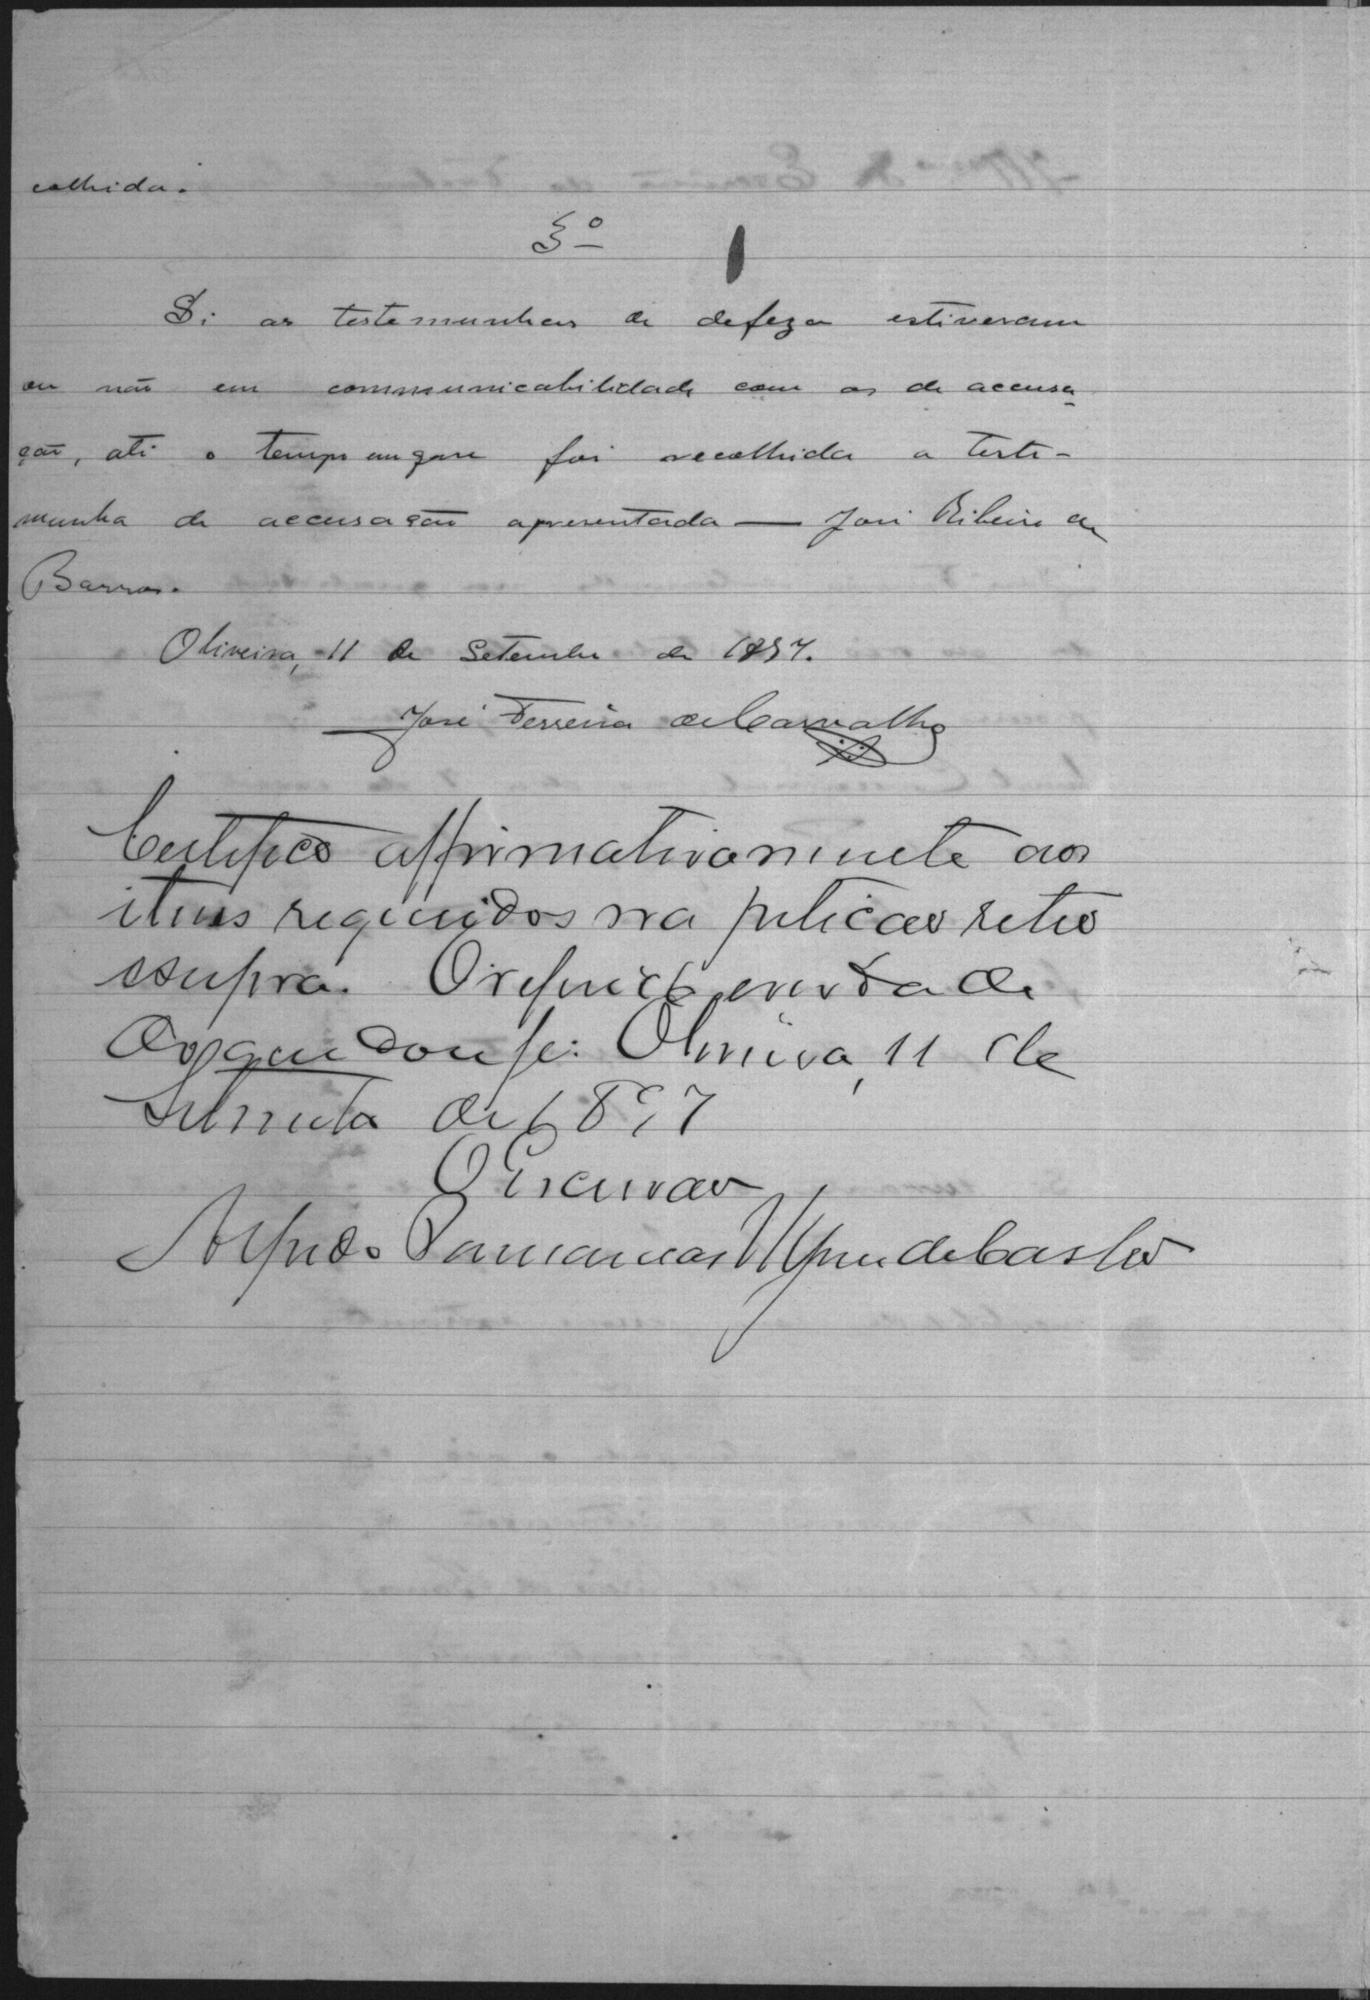 colhida.
3º
Si as testemunhas de defeza estiveram
ou não em communicabilidade com as de accusa
ção, até o tempo em que foi recolhida a teste-
munha de accusação apresentada — José Ribeiro de
Barros.
Oliveira, 11 de Setembro de 1897.
José Ferreira de Carvalho
Certifico affirmativamente aos
itens requeridos na petição retro
supra. O referido é verdade
do que dou fé. Oliveira, 11 de
Setembro de 1897
O Escrivão
Alfredo de Castro